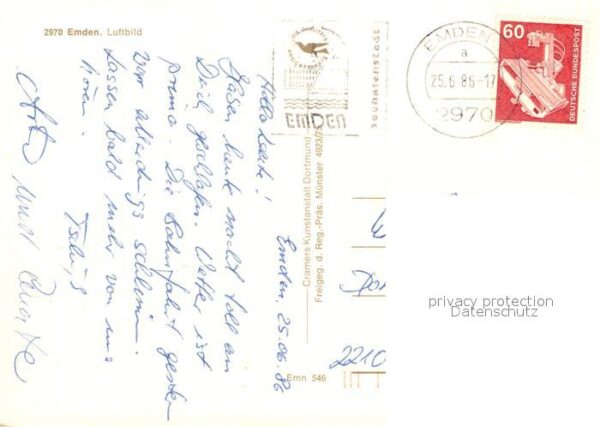 2970 Emden. Luftbild
Emden, 25.06.86
Hallo Leute!
Haben heute nacht toll am
Deich geschlafen. Wetter ist
prima. Die Bahnfahrt gestern
war allerdings schlimm.
Lassen bald mehr von uns
hören.
Tschüß
und
Cramers Kunstanstalt Dortmund
Freigeg. d. Reg.-Präs. Münster 4923/
Emn 546
EMDEN
Seehafenstadt
EMDEN
a
25.6.86-17
2970
60
DEUTSCHE BUNDESPOST
2210
privacy protection
Datenschutz